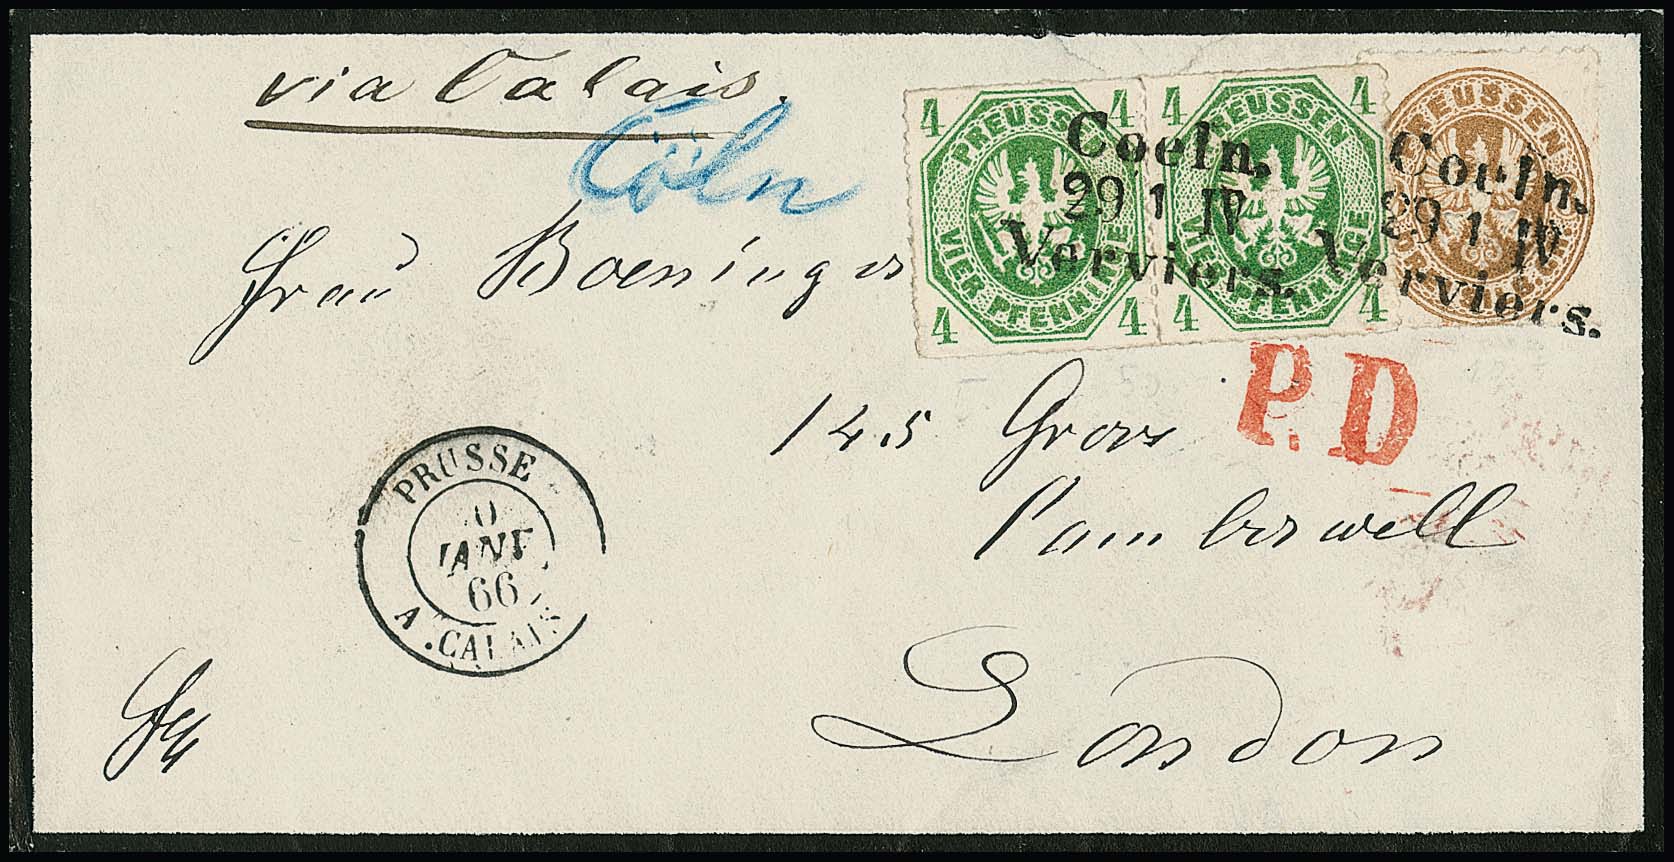 via Calais.
Cöln
4 4 PREUSSEN VIER PFENNINGE 4 4
4 4 PREUSSEN VIER PFENNINGE 4 4
PREUSSEN
Coeln.
29 1 IV
Verviers.
Coeln.
29 1 IV
Verviers.
Frau Boeninger
P.D
145 Grove
Camberwell
London
PRUSSE
0
JANV
66
A. CALAIS